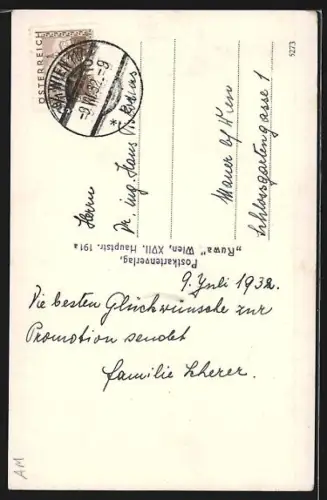 ÖSTERREICH
WIEN
-9.VII.32.-9
**
5273
Herrn
Dr. ing. Hans
Mauer b/Wien
Schlossgartengasse 1
Postkartenverlag,
„Kuwa" Wien, XVII. Hauptstr. 191a
9. Juli 1932.
Die besten Glückwünsche zur
Promotion sendet
familie Scherer.
AM